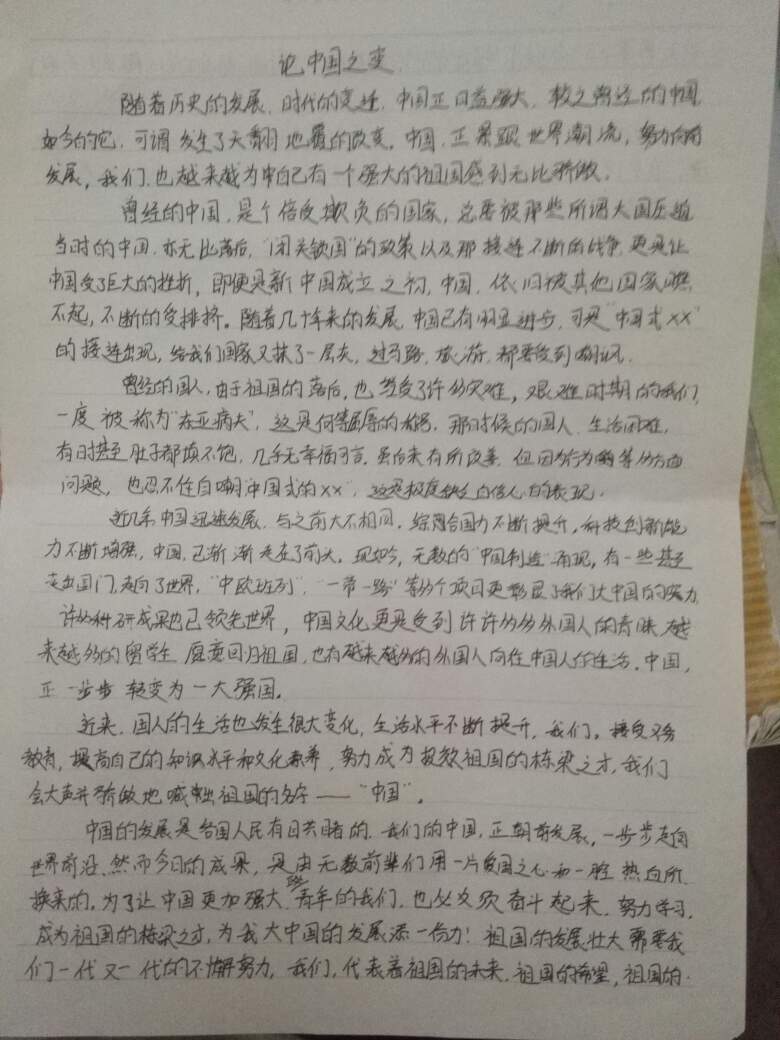 论中国之变
随着历史的发展、时代的变迁,中国正日益强大,较之曾经的中国,
如今的它,可谓发生了天翻地覆的改变,中国,正紧跟世界潮流,努力向前
发展,我们也越来越为自己有一个强大的祖国感到无比骄傲。
曾经的中国,是个倍受欺负的国家,总要被那些所谓大国压迫
当时的中国,亦无比落后,"闭关锁国"的政策以及那接连不断的战争,更是让
中国受了巨大的挫折,即便是新中国成立之初,中国,依旧被其他国家瞧
不起,不断的受排挤。随着几十年来的发展,中国已有明显进步,可是"中国式XX"
的接连出现,给我们国家又抹了一层灰,过马路,旅游,都要受到嘲讽。
曾经的国人,由于祖国的落后,也受了许多灾难,艰难时期的我们,
一度被称为"东亚病夫",这是何等屈辱的称号,那时候的国人,生活困难,
有时甚至肚子都填不饱,几乎无幸福可言。虽后来有所改善,但因为行为等多方面
问题,也忍不住自嘲"中国式的XX",这是极度缺乏自信人的表现。
近几年,中国迅速发展,与之前大不相同,综合国力不断提升,科技创新能
力不断增强,中国,已渐渐走在了前头。现如今,无数的"中国制造"出现,有一些甚至
走出国门,走向了世界,"中欧班列"、"一带一路"等多个项目更彰显了我们大中国的实力
许多科研成果也已领先世界,中国文化更是受到许许多多外国人的青睐,越
来越多的留学生愿意回归祖国,也有越来越多的外国人向往中国人的生活,中国,
正一步步转变为一大强国。
近来,国人的生活也发生很大变化,生活水平不断提升,我们,接受义务
教育,提高自己的知识水平和文化素养,努力成为报效祖国的栋梁之才,我们
会大声并骄傲地喊出祖国的名字——"中国"。
中国的发展是各国人民有目共睹的,我们的中国,正朝前发展,一步步走向
世界前沿,然而今日的成果,是由无数前辈们用一片爱国之心和一腔热血所
换来的,为了让中国更加强大,青年的我们,也必须奋斗起来,努力学习,
成为祖国的栋梁之才,为我大中国的发展添一份力!祖国的发展壮大需要我
们一代又一代的不懈努力,我们,代表着祖国的未来,祖国的希望,祖国的